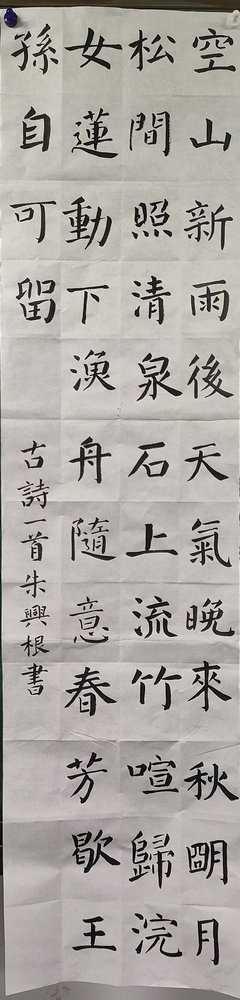 空山新雨後天氣晚來秋朙月
松間照清泉石上流竹喧歸浣
女蓮動下漁舟隨意春芳歇王
孫自可留
古詩一首朱興根書